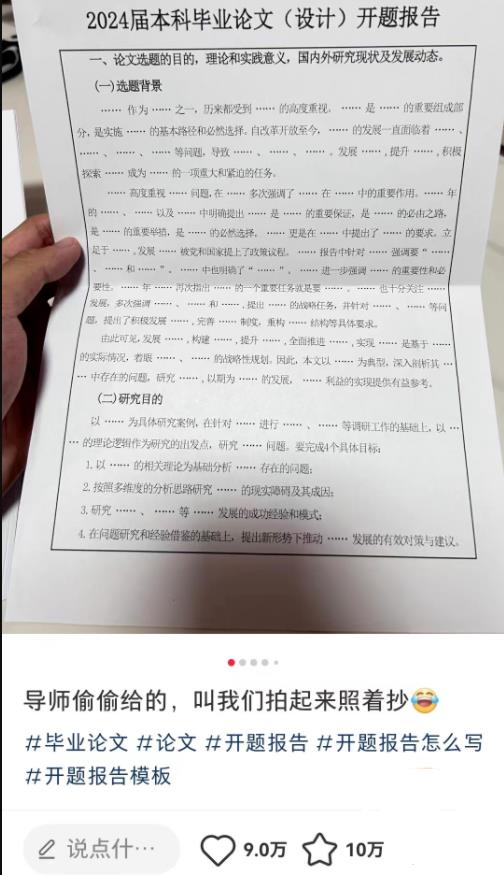 2024届本科毕业论文（设计）开题报告
一、论文选题的目的，理论和实践意义，国内外研究现状及发展动态。
(一)选题背景
…… 作为 …… 之一，历来都受到 …… 的高度重视。 …… 是 …… 的重要组成部
分，是实施 …… 的基本路径和必然选择。自改革开放至今， …… 的发展一直面临着 …… 、
…… 、 …… 、 …… 等问题，导致 …… 、 …… 、 …… 。发展 …… ，提升 …… ，积极
探索 …… 成为 …… 的一项重大和紧迫的任务。
…… 高度重视 …… 问题，在 …… 多次强调了 …… 在 …… 中的重要作用。 …… 年
的 …… 、 …… 以及 …… 中明确提出 …… 是 …… 的重要保证，是 …… 的必由之路，
是 …… 的重要举措，是 …… 的必然选择， …… 更是在 …… 中提出了 …… 的要求。立
足于 …… ，发展 …… 被党和国家提上了政策议程。 …… 报告中针对 …… 强调要“ ……
、 …… 和 …… ”。 …… 中也明确了“ …… ”， …… 进一步强调 …… 的重要性和必
要性。 …… 年 …… 再次指出 …… 的一个重要任务就是要 …… 。 …… 也十分关注 ……
发展，多次强调 …… 、 …… 和 …… ，提出 …… 的战略任务，并针对 …… 、 …… 等问
题，提出了积极发展 …… ，完善 …… 制度，重构 …… 结构等具体要求。
由此可见，发展 …… ，构建 …… ，提升 …… ，全面推进 …… ，实现 …… 是基于 ……
的实际情况，着眼 …… 、 …… 的战略性规划。因此，本文以 …… 为典型，深入剖析其 …
… 中存在的问题，研究 …… ，以期为 …… 的发展， …… 利益的实现提供有益参考。
(二)研究目的
以 …… 为具体研究案例，在针对 …… 进行 …… 、 …… 等调研工作的基础上，以 …
… 的理论逻辑作为研究的出发点，研究 …… 问题。要完成4个具体目标：
1. 以 …… 的相关理论为基础分析 …… 存在的问题；
2. 按照多维度的分析思路研究 …… 的现实障碍及其成因；
3. 研究 …… 、 …… 等 …… 发展的成功经验和模式；
4. 在问题研究和经验借鉴的基础上，提出新形势下推动 …… 发展的有效对策与建议。
导师偷偷给的，叫我们拍起来照着抄😂
#毕业论文 #论文 #开题报告 #开题报告怎么写
#开题报告模板
说点什… 9.0万 10万